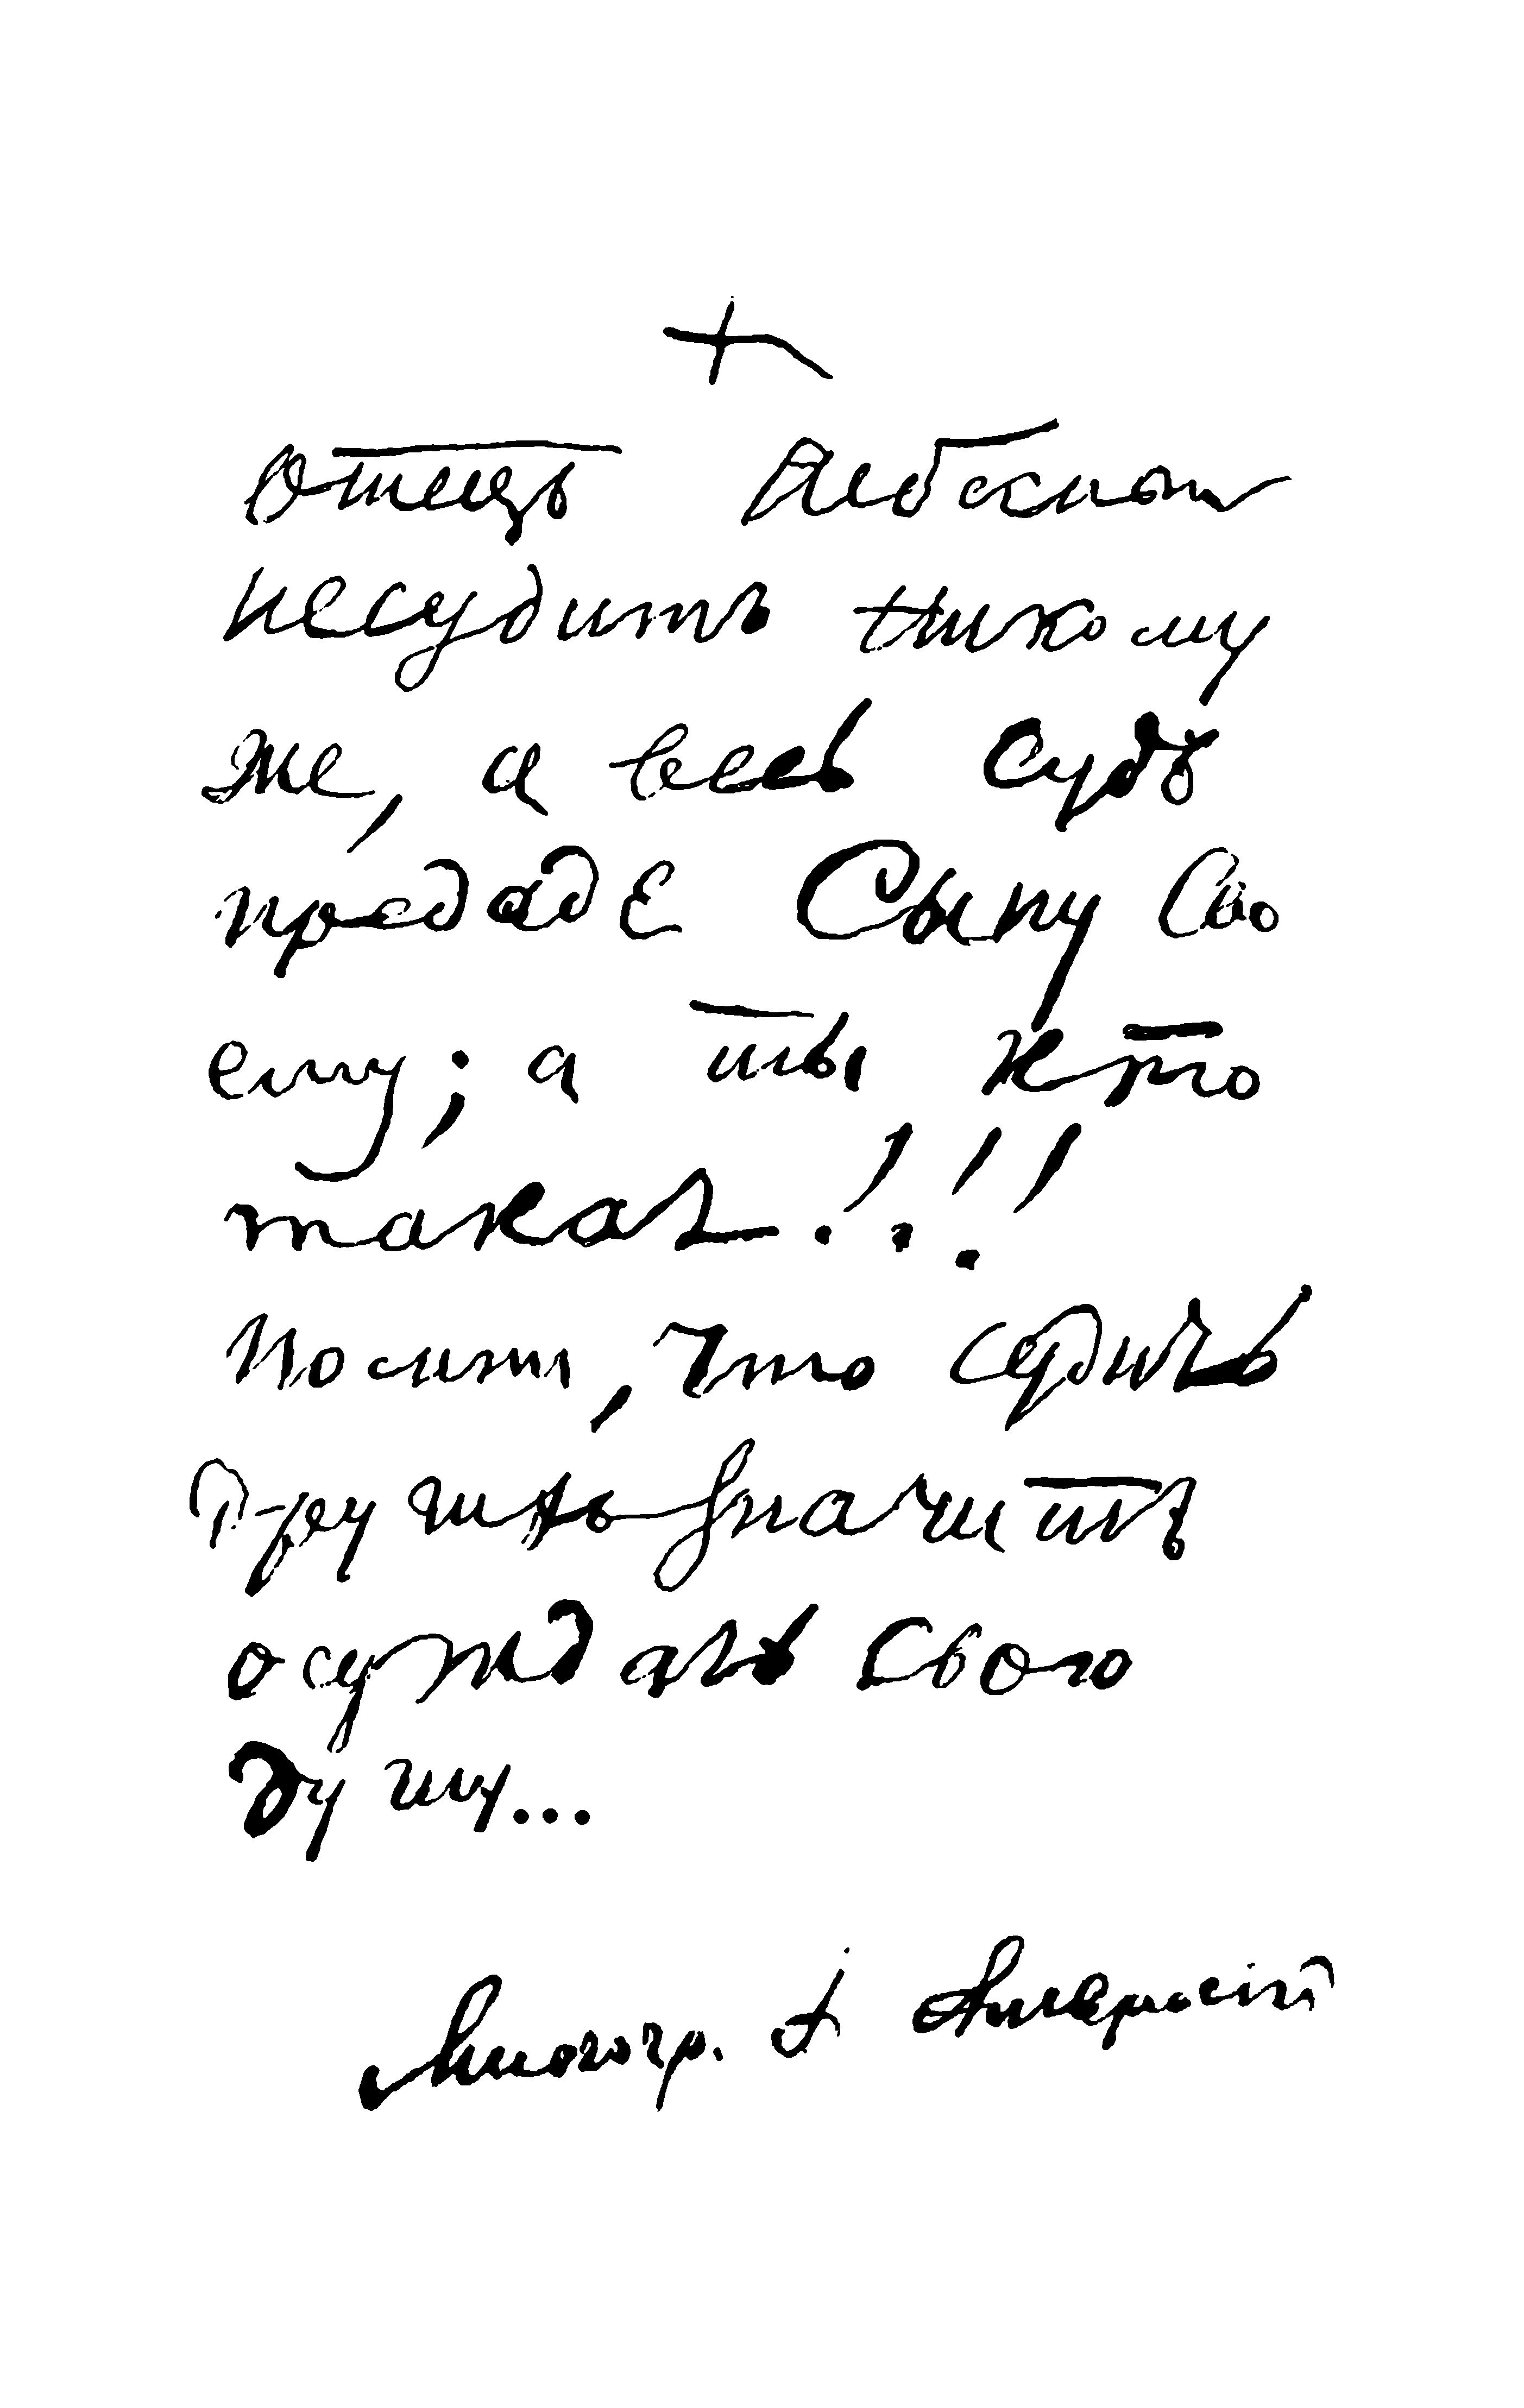 Отецъ Небесный
несудитъ никому
же, а весь Судъ
предаде Сыну Сво
ему; а ты кто
такая!!!
Помни, что судить
другихъ значитъ
осуждать свою
душу...
Многогр. І. Амвросій